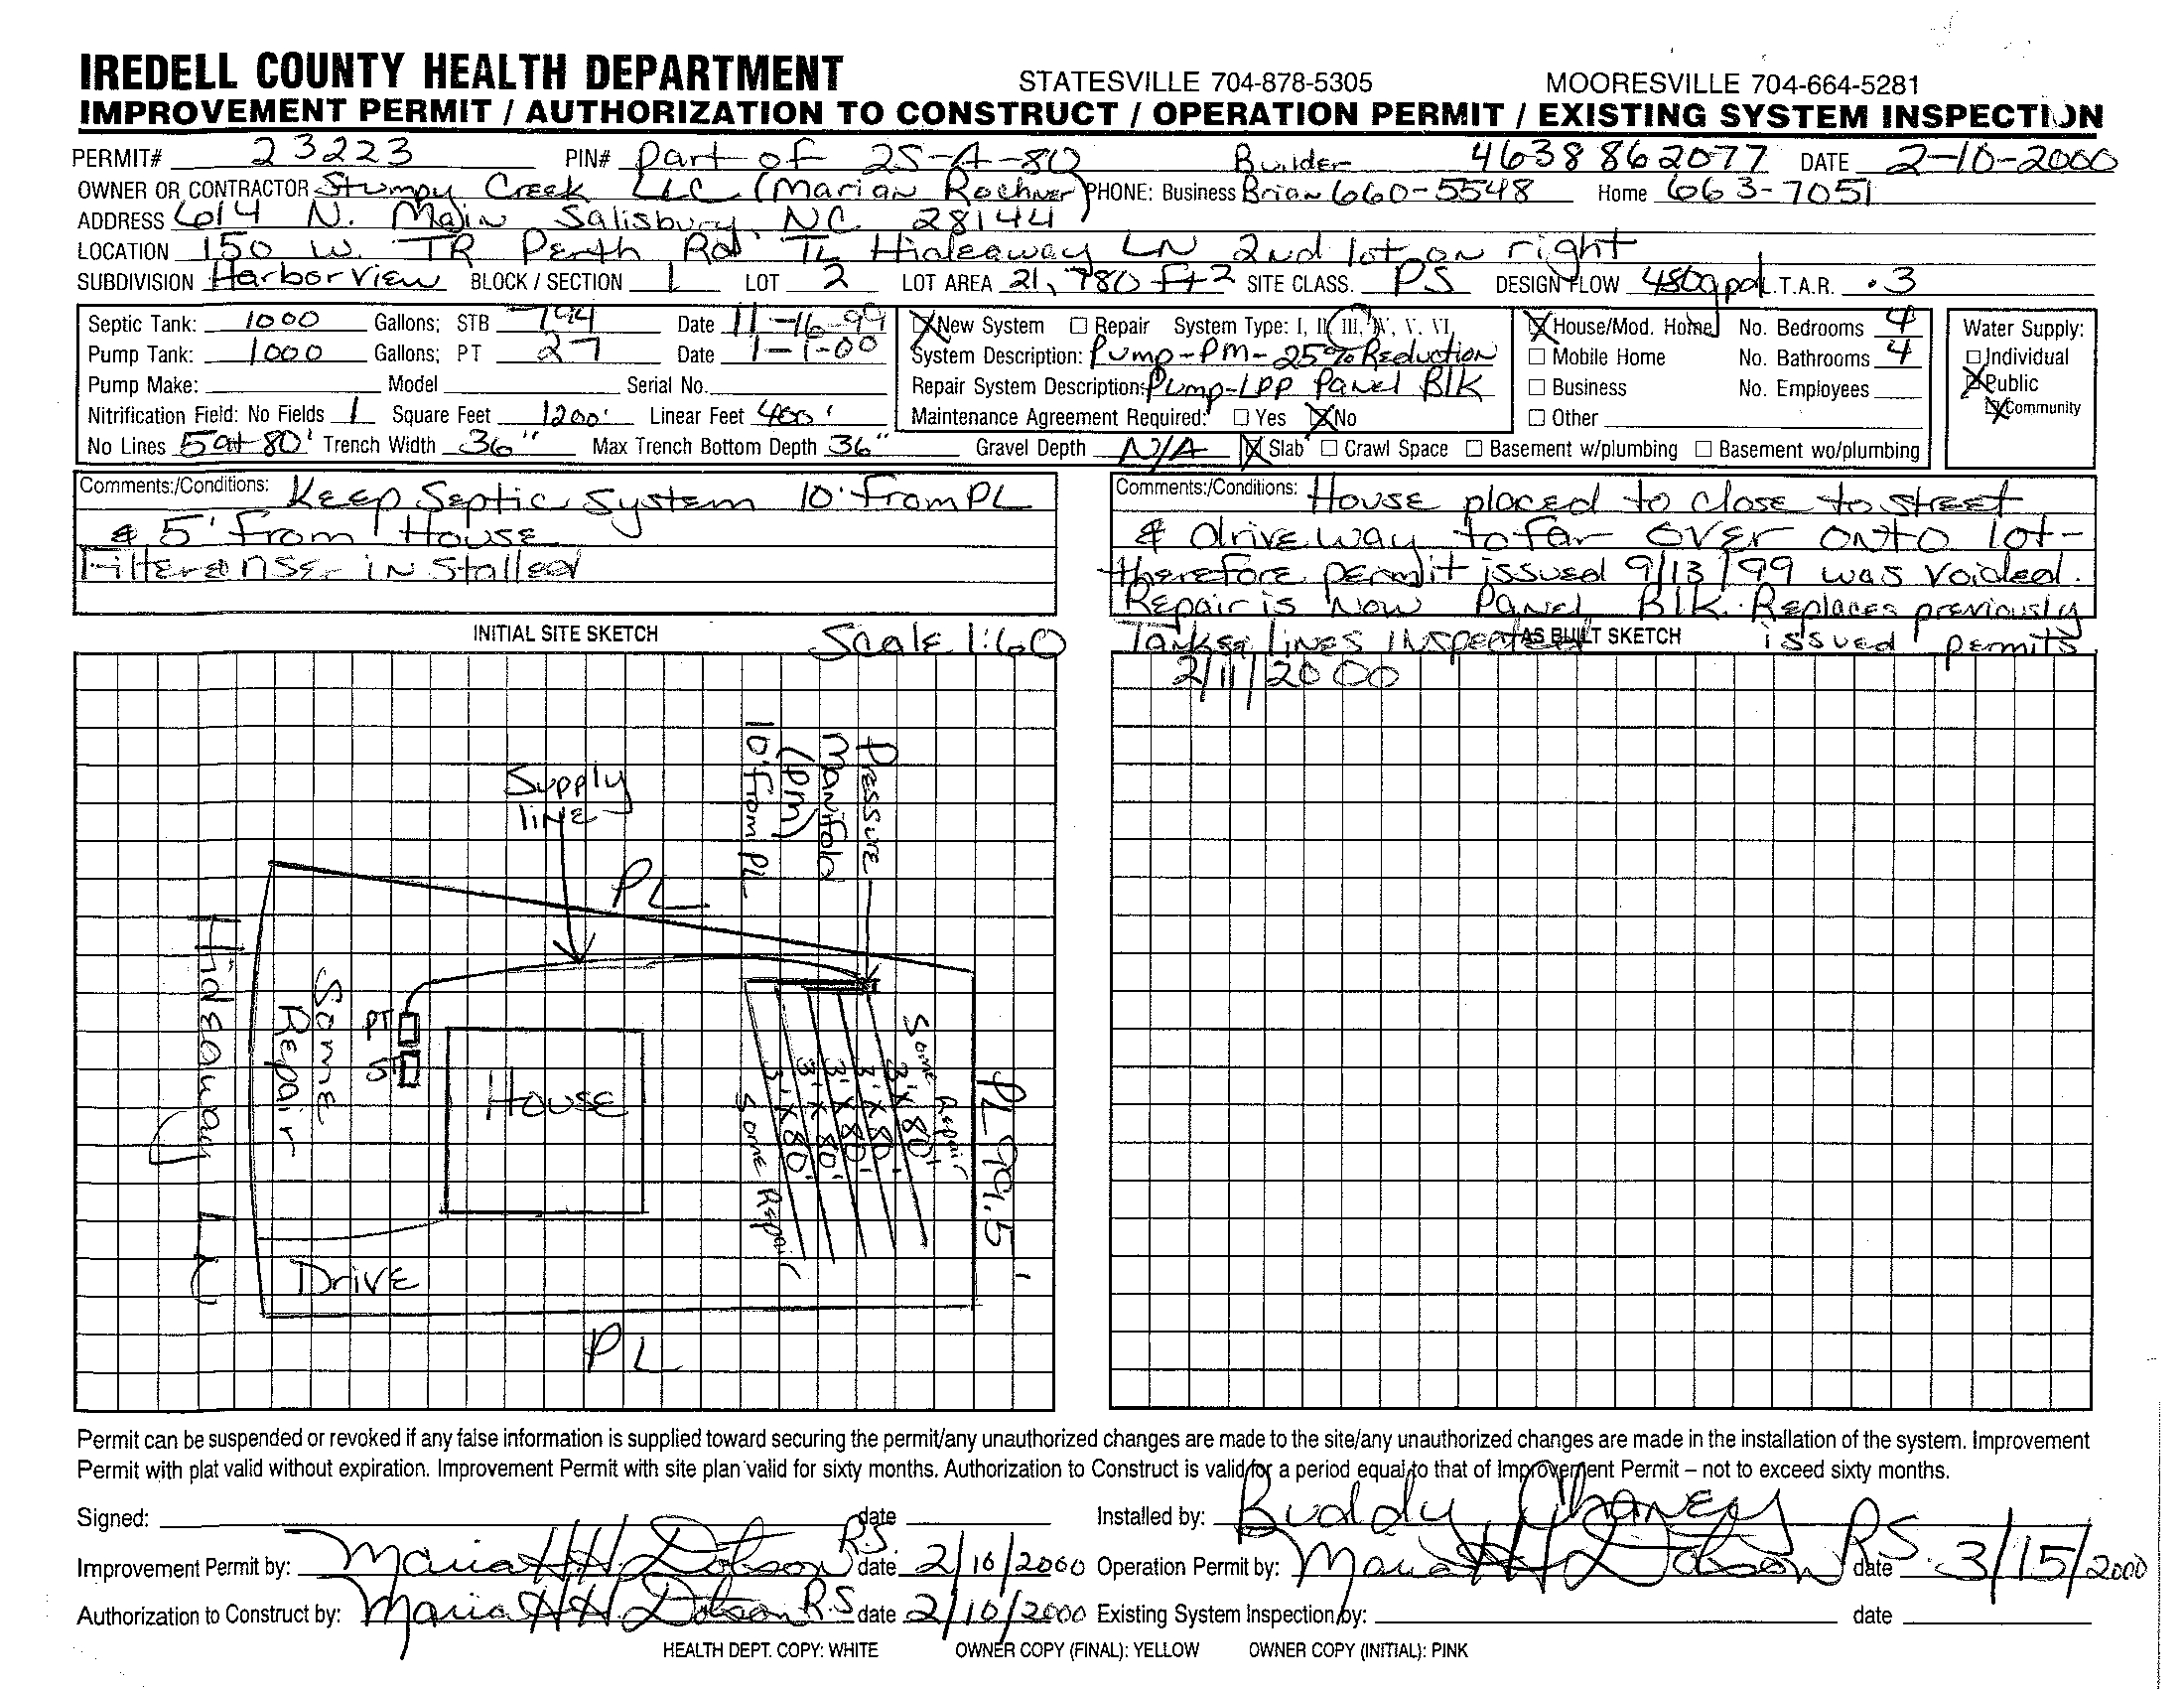 IREDELL COUNTY HEALTH DEPARTMENT STATESVILLE 704-878-5305 MOORESVILLE 704-664-5281
IMPROVEMENT PERMIT / AUTHORIZATION TO CONSTRUCT / OPERATION PERMIT / EXISTING SYSTEM INSPECTION
PERMIT# 23223 PIN# Part of 25-A-80 Builder 4638862077 DATE 2-10-2000
OWNER OR CONTRACTOR Stumpy Creek LLC (Marian PHONE: Business Brian 660-5548 Home 663-7051
ADDRESS 614 N. Main Salisbury, NC 28144
LOCATION 150 W. TR Perth Rd TL Hideaway LN 2nd lot on right
SUBDIVISION Harbor View BLOCK / SECTION 1 LOT 2 LOT AREA 21,780 ft2 SITE CLASS. PS DESIGN FLOW 480gpd L.T.A.R. .3
Septic Tank: 1000 Gallons; STB 794 Date 11-16-99 New System Repair System Type: I, II, III, IV, V, VI, House/Mod. Home No. Bedrooms 4 Water Supply:
Pump Tank: 1000 Gallons; PT 27 Date 1-1-00 System Description: Pump-PM-25% Reduction Mobile Home No. Bathrooms 4 Individual
Pump Make: Model Serial No. Repair System Description: Pump-LPP Panel Blk Business No. Employees Public
Nitrification Field: No Fields 1 Square Feet 1200' Linear Feet 400' Maintenance Agreement Required: Yes No Other Community
No Lines 5 at 80' Trench Width 36" Max Trench Bottom Depth 36" Gravel Depth N/A Slab Crawl Space Basement w/plumbing Basement wo/plumbing
Comments:/Conditions: Keep Septic System 10' from PL
& 5' from House
Filter installed
Comments:/Conditions: House placed to close to street
& driveway to far over onto lot-
therefore permit issued 9/13/99 was voided.
Repair is now Panel Blk. Replaces previously
issued permits
INITIAL SITE SKETCH Scale 1:60
Tank & lines inspected AS BUILT SKETCH
2/11/2000
Supply
line
Pressure
Manifold
(pm)
10' from PL
PL
Hideaway LN
Some
Repair
PT
ST
House
3'x80'
3'x80'
3'x80'
3'x80'
3'x80'
Some Repair
Some Repair
PL 99.5'
Drive
PL
Permit can be suspended or revoked if any false information is supplied toward securing the permit/any unauthorized changes are made to the site/any unauthorized changes are made in the installation of the system. Improvement
Permit with plat valid without expiration. Improvement Permit with site plan valid for sixty months. Authorization to Construct is valid for a period equal to that of Improvement Permit – not to exceed sixty months.
Signed: date Installed by: Buddy Chaney
Improvement Permit by: Maria H. Dobson R.S. date 2/10/2000 Operation Permit by: Maria H Dobson R.S. date 3/15/2000
Authorization to Construct by: Maria H. Dobson R.S date 2/10/2000 Existing System Inspection by: date
HEALTH DEPT. COPY: WHITE OWNER COPY (FINAL): YELLOW OWNER COPY (INITIAL): PINK